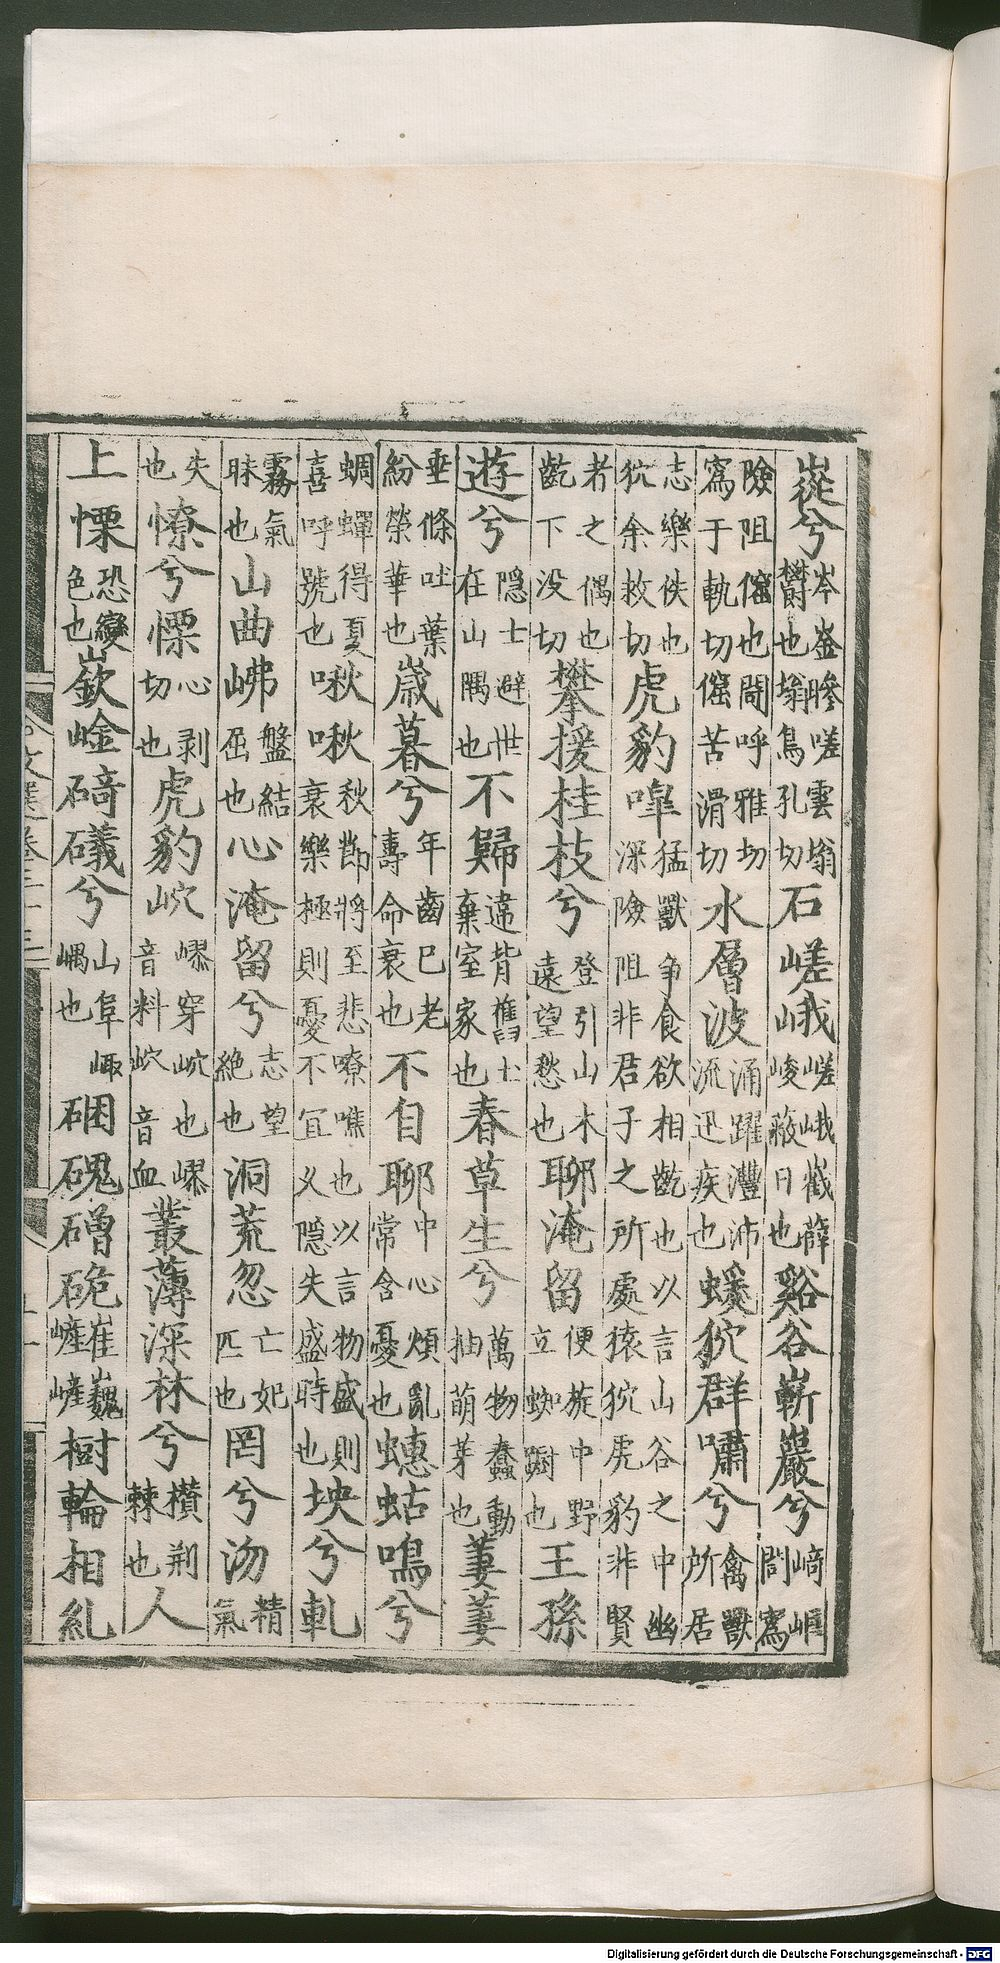 嵸兮岑崟㠁嵯雲蓊鬱也蓊烏孔切石嵯峨嵯峨嶻薛峻蔽日也谿谷嶄巖兮崎𡸌閜寪
險阻也閜呼雅切寪于軌切苦滑切水層波涌躍灃沛流迅疾也蝯狖群嘯兮禽獸所居
志樂佚也狖余救切虎豹嘷猛獸争食欲相齕也以言山谷之中幽深險阻非君子之所處猿狖虎豹非賢
者之偶也齕下没切攀援桂枝兮登引山木遠望愁也聊淹留便旋中野立踟蹰也王孫
遊兮隱士避世在山隅也不歸違背舊土棄室家也春草生兮萬物蠢動抽萌芽也萋萋
垂條吐葉紛榮華也歲暮兮年齒已老壽命衰也不自聊中心煩亂常含憂也蟪蛄鳴兮
蜩蟬得夏喜呼號也啾啾秋節將至悲嘹噍也以言物盛則衰樂極則憂不宜久隱失盛時也坱兮軋
霧氣昧也山曲岪盤結屈也心淹留兮志望絶也洞荒忽亡妃匹也罔兮沕精氣
失也憭兮慄心剥切也虎豹岤嵺穿岤也嵺音料岤音血叢薄深林兮攢荆棘也人
上慄恐變色也嶔崟碕礒兮山阜嵎也硱磈磳硊崔巍嵼嵼樹輪相糺
文選卷三十三
Digitalisierung gefördert durch die Deutsche Forschungsgemeinschaft - DFG